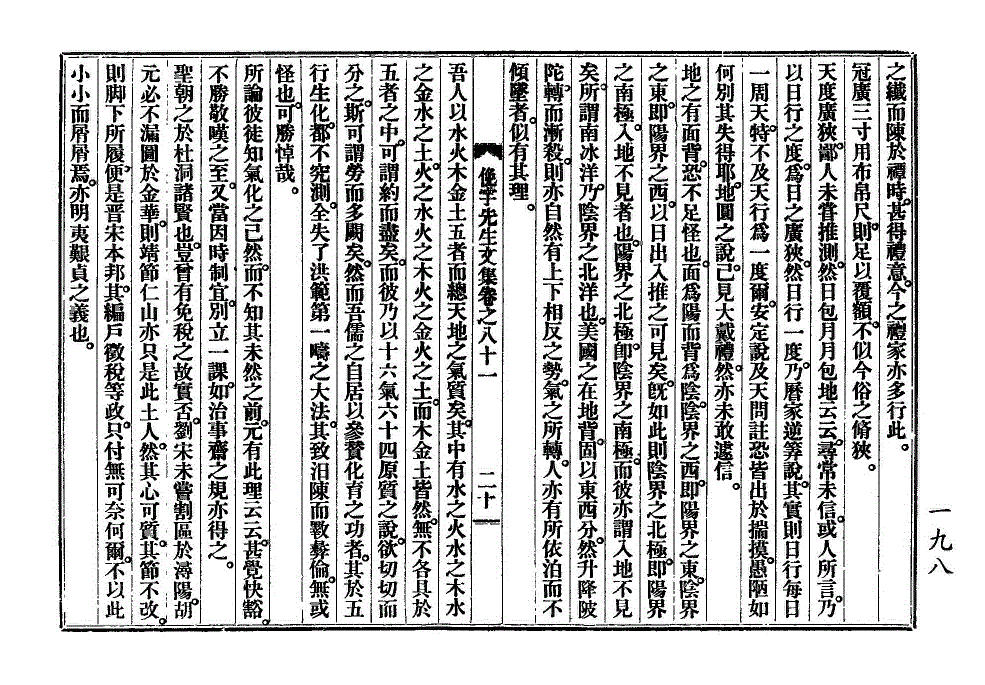 之纖而陳於禫時。甚得禮意。今之禮家亦多行此。
冠廣三寸用布帛尺。則足以覆額。不似今俗之脩狹。
天度廣狹。鄙人未嘗推測。然日包月月包地云云。尋常未信。或人所言。乃
以日行之度。爲日之廣狹。然日行一度。乃曆家逆筭說。其實則日行每日
一周天。特不及天行爲一度爾。安定說及天問註恐皆出於揣摸。愚陋如
何別其失得耶。地圓之說。已見大戴禮。然亦未敢遽信。
地之有面背。恐不足怪也。面爲陽而背爲陰。陰界之西。卽陽界之東。陰界
之東。卽陽界之西。以日出入推之可見矣。旣如此則陰界之北極。卽陽界
之南極。入地不見者也。陽界之北極。卽陰界之南極。而彼亦謂入地不見
矣。所謂南氷洋。乃陰界之北洋也。美國之在地背。固以東西分。然升降陂
陀。轉而漸殺。則亦自然有上下相反之勢。氣之所轉。人亦有所依泊而不
傾墜者。似有其理。
俛宇先生文集卷之八十一 二十
吾人以水火木金土五者而總天地之氣質矣。其中有水之火水之木水
之金水之土。火之水火之木火之金火之土。而木金土皆然。無不各具於
五者之中。可謂約而盡矣。而彼乃以十六氣六十四原質之說。欲切切而
分之。斯可謂勞而多闕矣。然而吾儒之自居以參贊化育之功者。其於五
行生化。都不究測。全失了洪範第一疇之大法。其致汨陳而斁彝倫。無或
怪也。可勝悼哉。
所論彼徒知氣化之已然。而不知其未然之前。元有此理云云。甚覺快豁。
不勝敬嘆之至。又當因時制宜。別立一課。如治事齋之規亦得之。
聖朝之於杜洞諸賢也。豈曾有免稅之故實否。劉宋未嘗割區於潯陽。胡
元必不漏圖於金華。則靖節仁山亦只是此土人。然其心可質。其節不改。
則脚下所履。便是晋宋本邦。其編戶徵稅等政。只付無可奈何爾。不以此
小小而屑屑焉。亦明夷艱貞之義也。
一九八